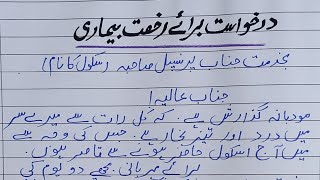 درخواست برائے رخصت بیماری
بخدمت جناب پرنسپل صاحبہ اسکول کا نام)
جناب عالیہ!
مودبانہ گذارش ہے۔ کہ کل رات سے میرے سر
میں درد اور تیز بخار ہے۔ جس کی وجہ سے
میں آج اسکول حاضر ہونے سے قاصر ہوں۔
برائے مہربانی۔ مجھے دو یوم کی